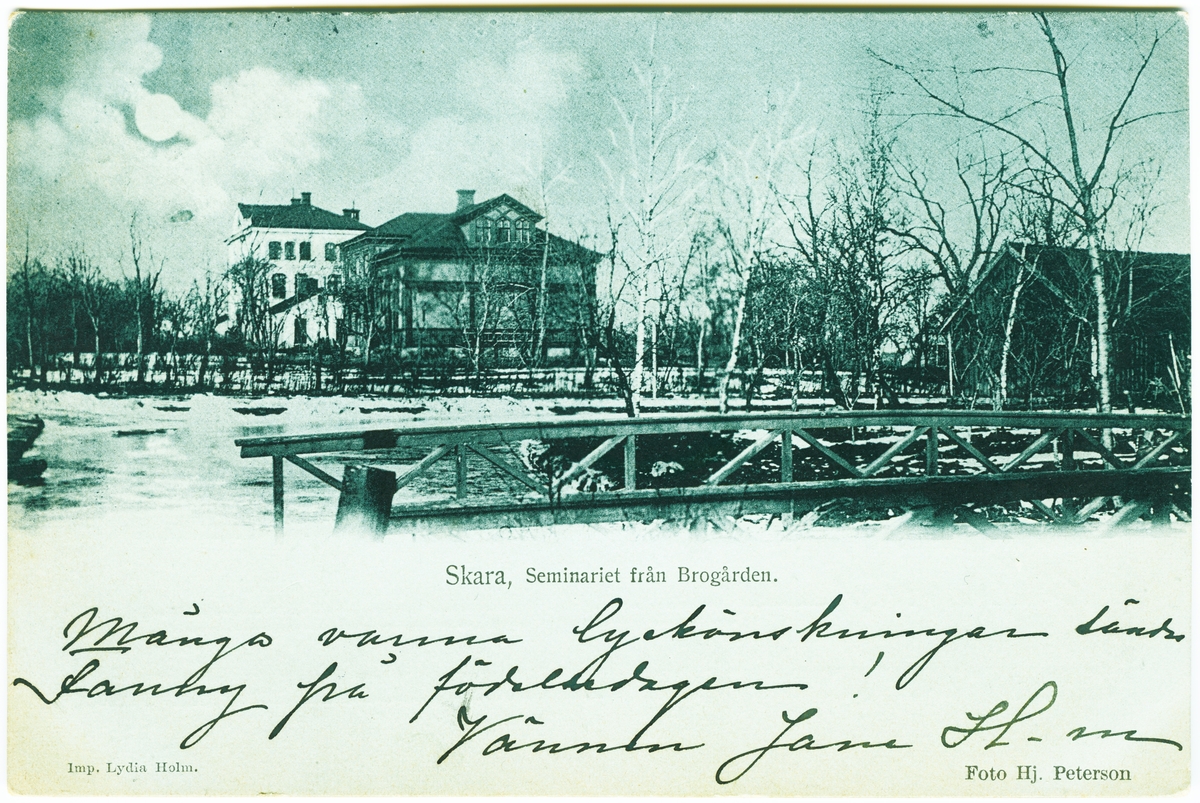 Skara, Seminariet från Brogården.
Många varma lyckönskningar sändes
Fanny på födelsedagen!
Vännen Jane H-m
Imp. Lydia Holm.
Foto Hj. Peterson